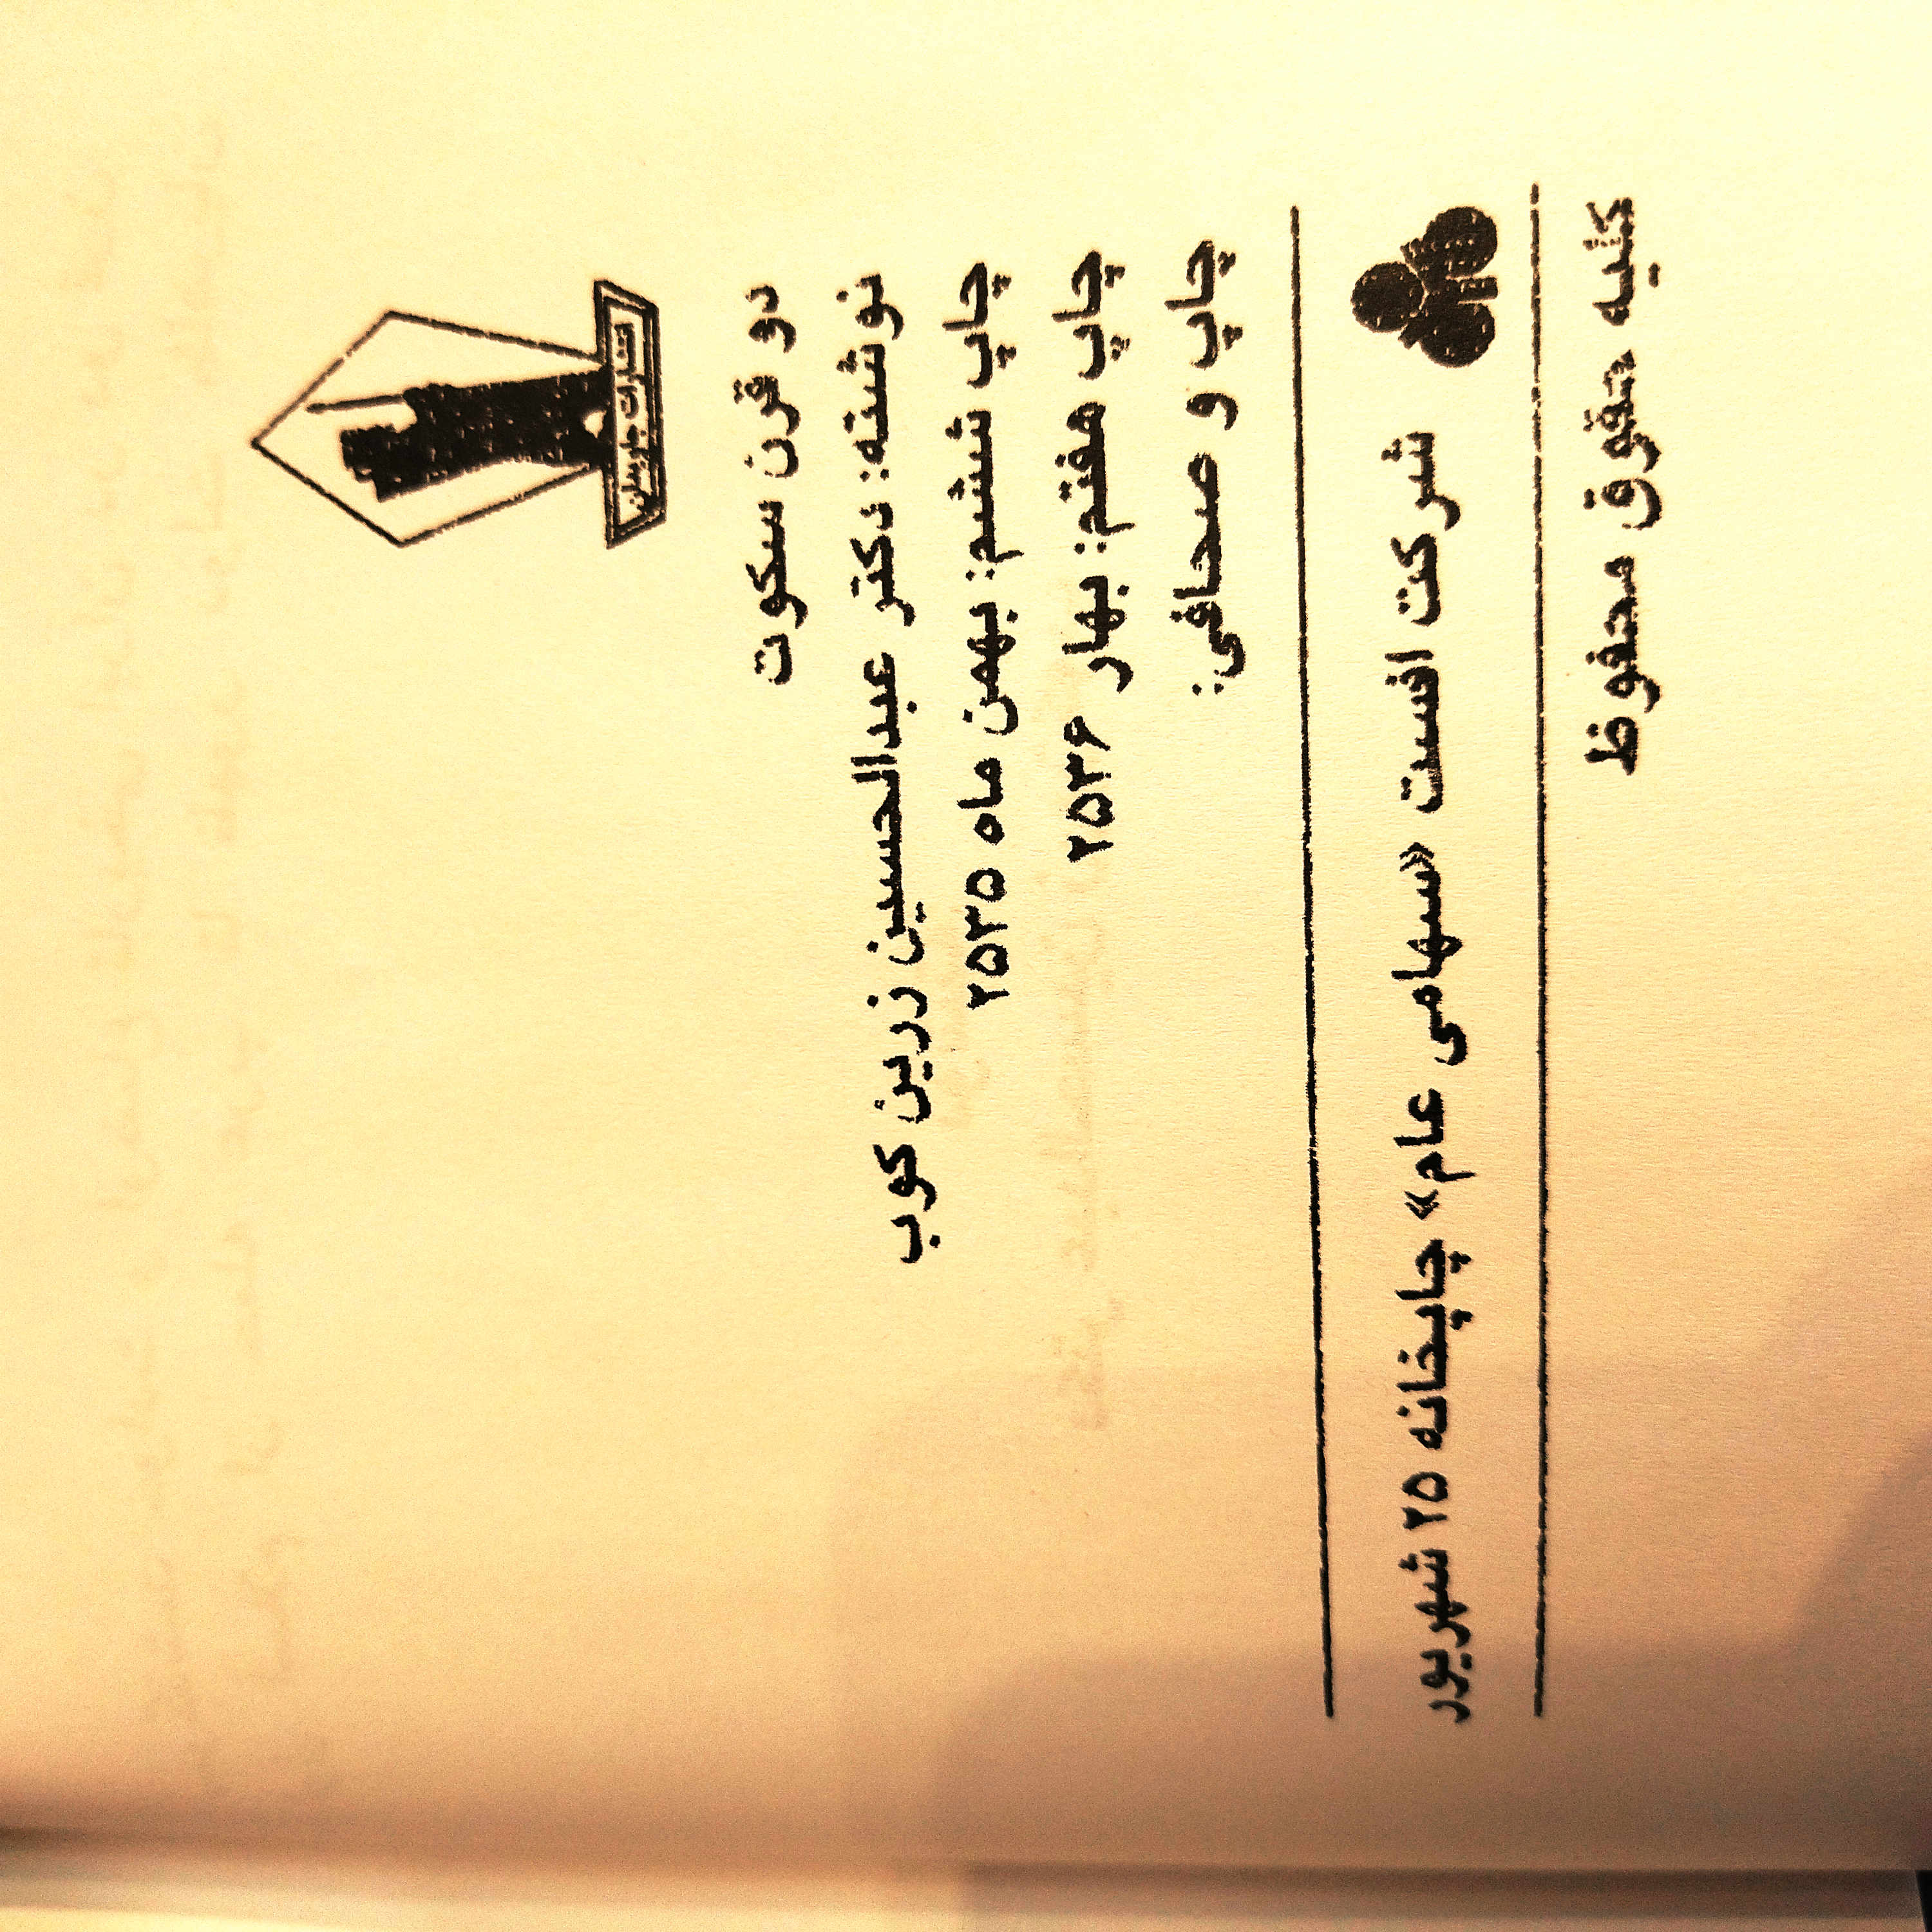 انتشارات جاویدان
دو قرن سکوت
نوشته: دکتر عبدالحسین زرین کوب
چاپ ششم: بهمن ماه ۲۵۳۵
چاپ هفتم: بهار ۲۵۳۶
چاپ و صحافی:
شرکت افست «سهامی عام» چاپخانه ۲۵ شهریور
کلیه حقوق محفوظ